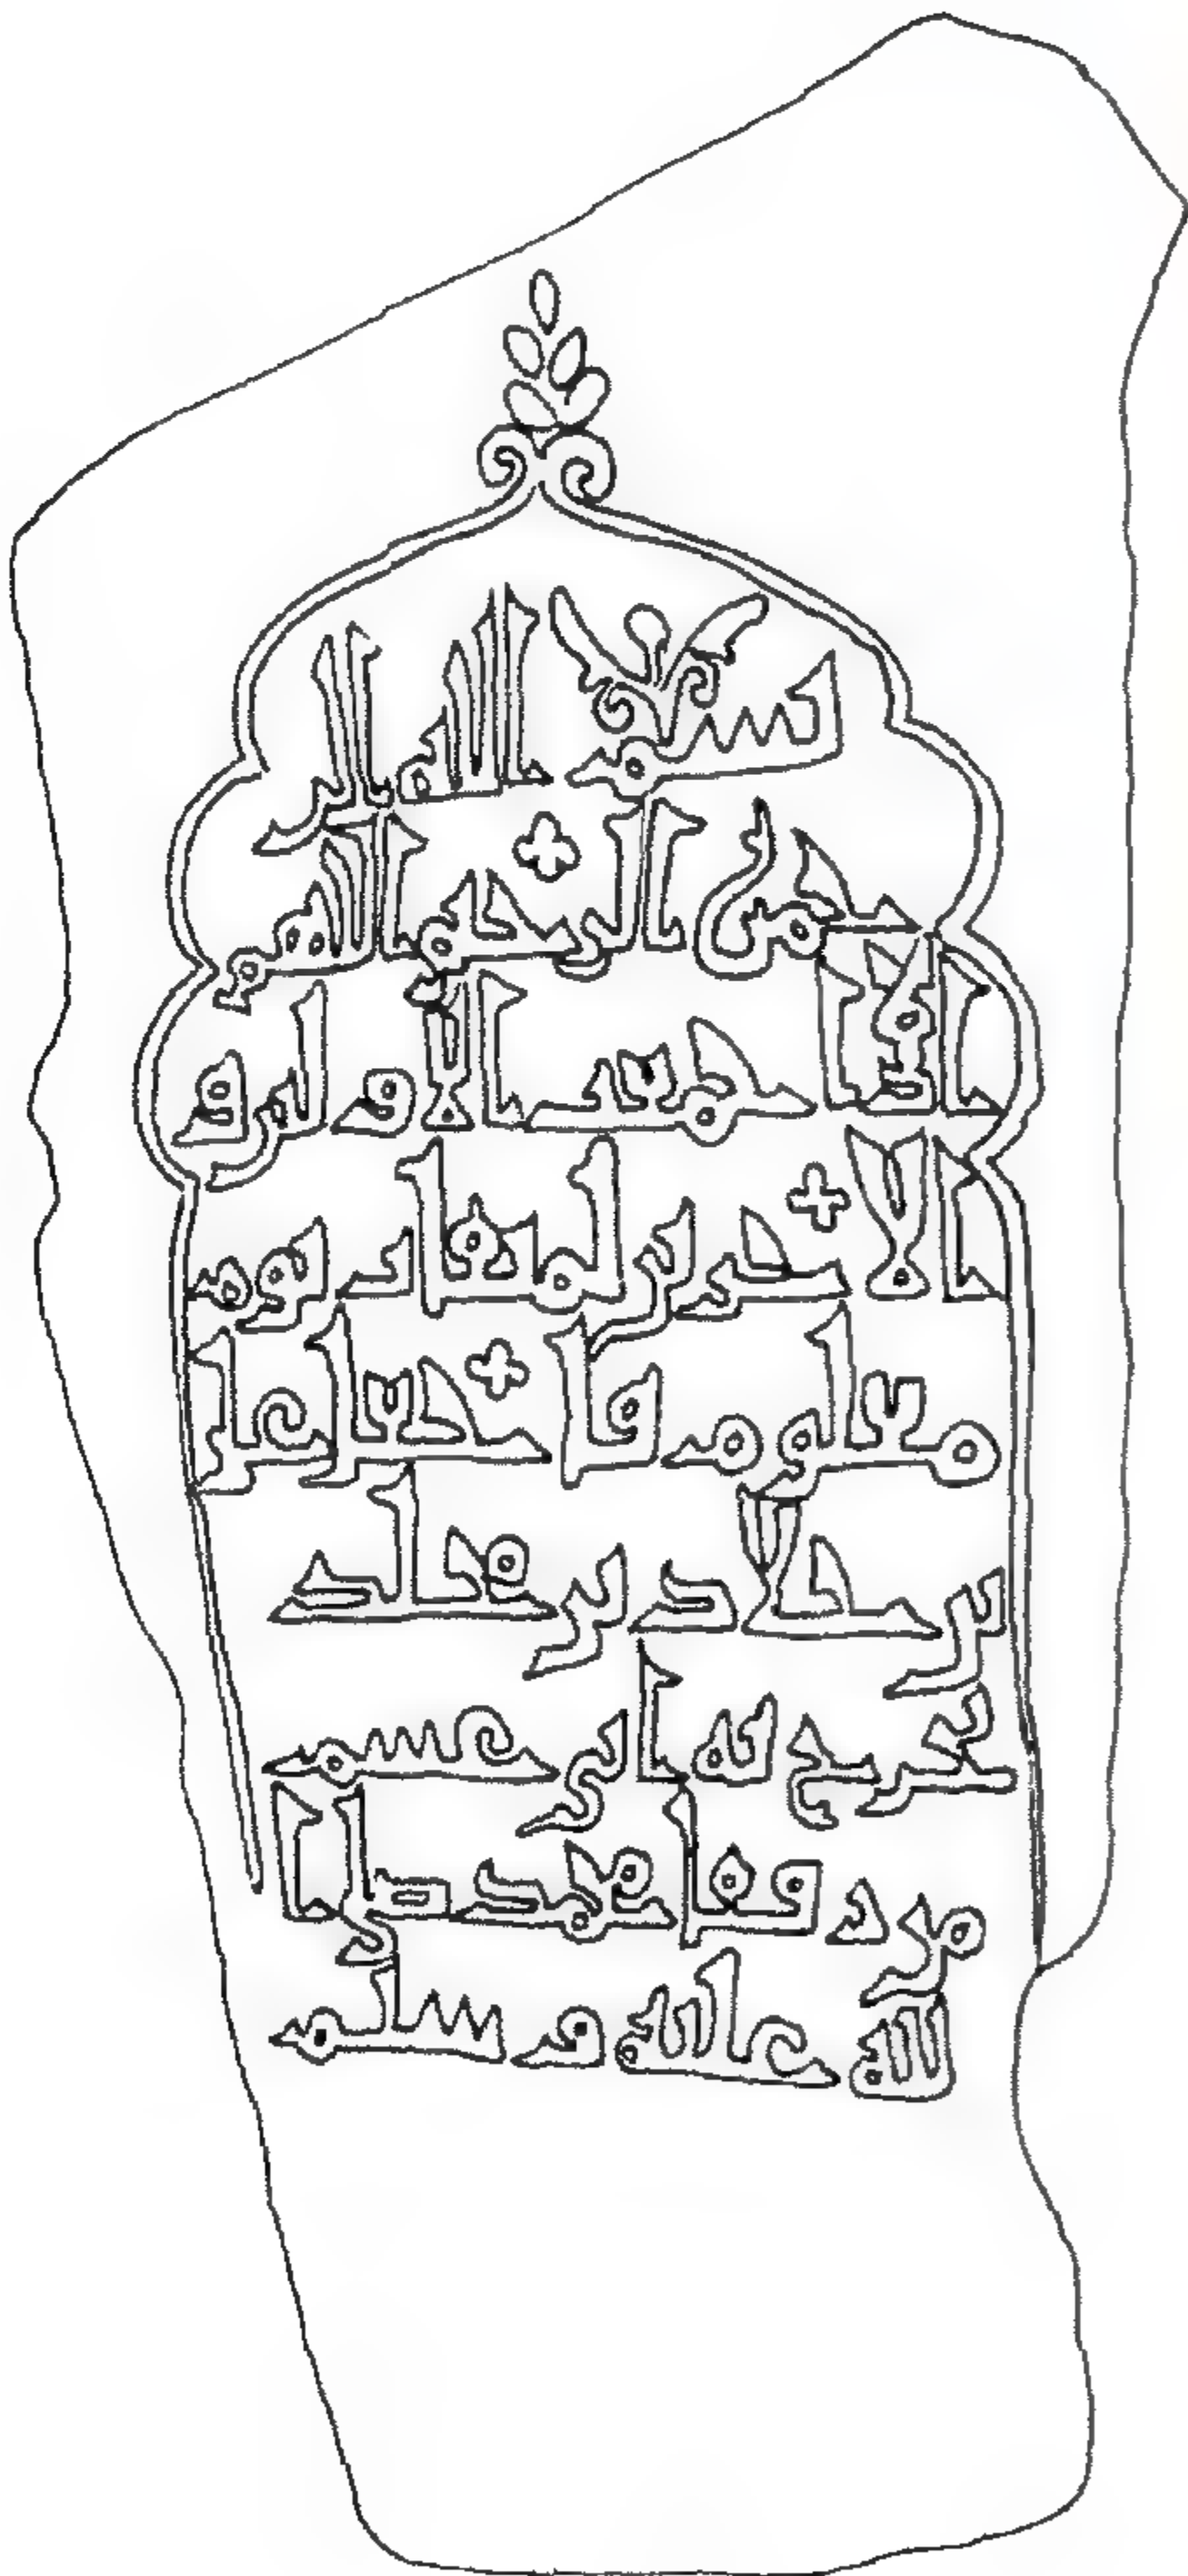 بسم الله الر
حمن الرحيم اللهم
اذا جمعت الاولين و
الاخرين لميقات يوم
معلوم فاجعل
بن خلاد بن مخلد
من رفقا محمد صلى ا
لله عليه وسلم